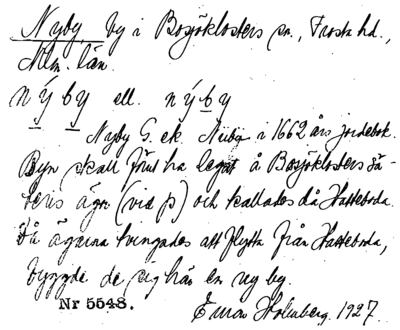 Nyby, by i Bosjöklosters sn., Frosta hd.,
Mlm. län.
nýby ell. nýby
Nyby G. ek. Nüby i 1662 års jordebok.
Byn skall förut ha legat å Bosjöklosters sä-
teris ägor (vid p) och kallades då Hatteboda.
Då ägarna tvingades att flytta från Hatteboda,
byggde de sig här en ny by.
Nr 5548. Einar Holmberg. 1927.